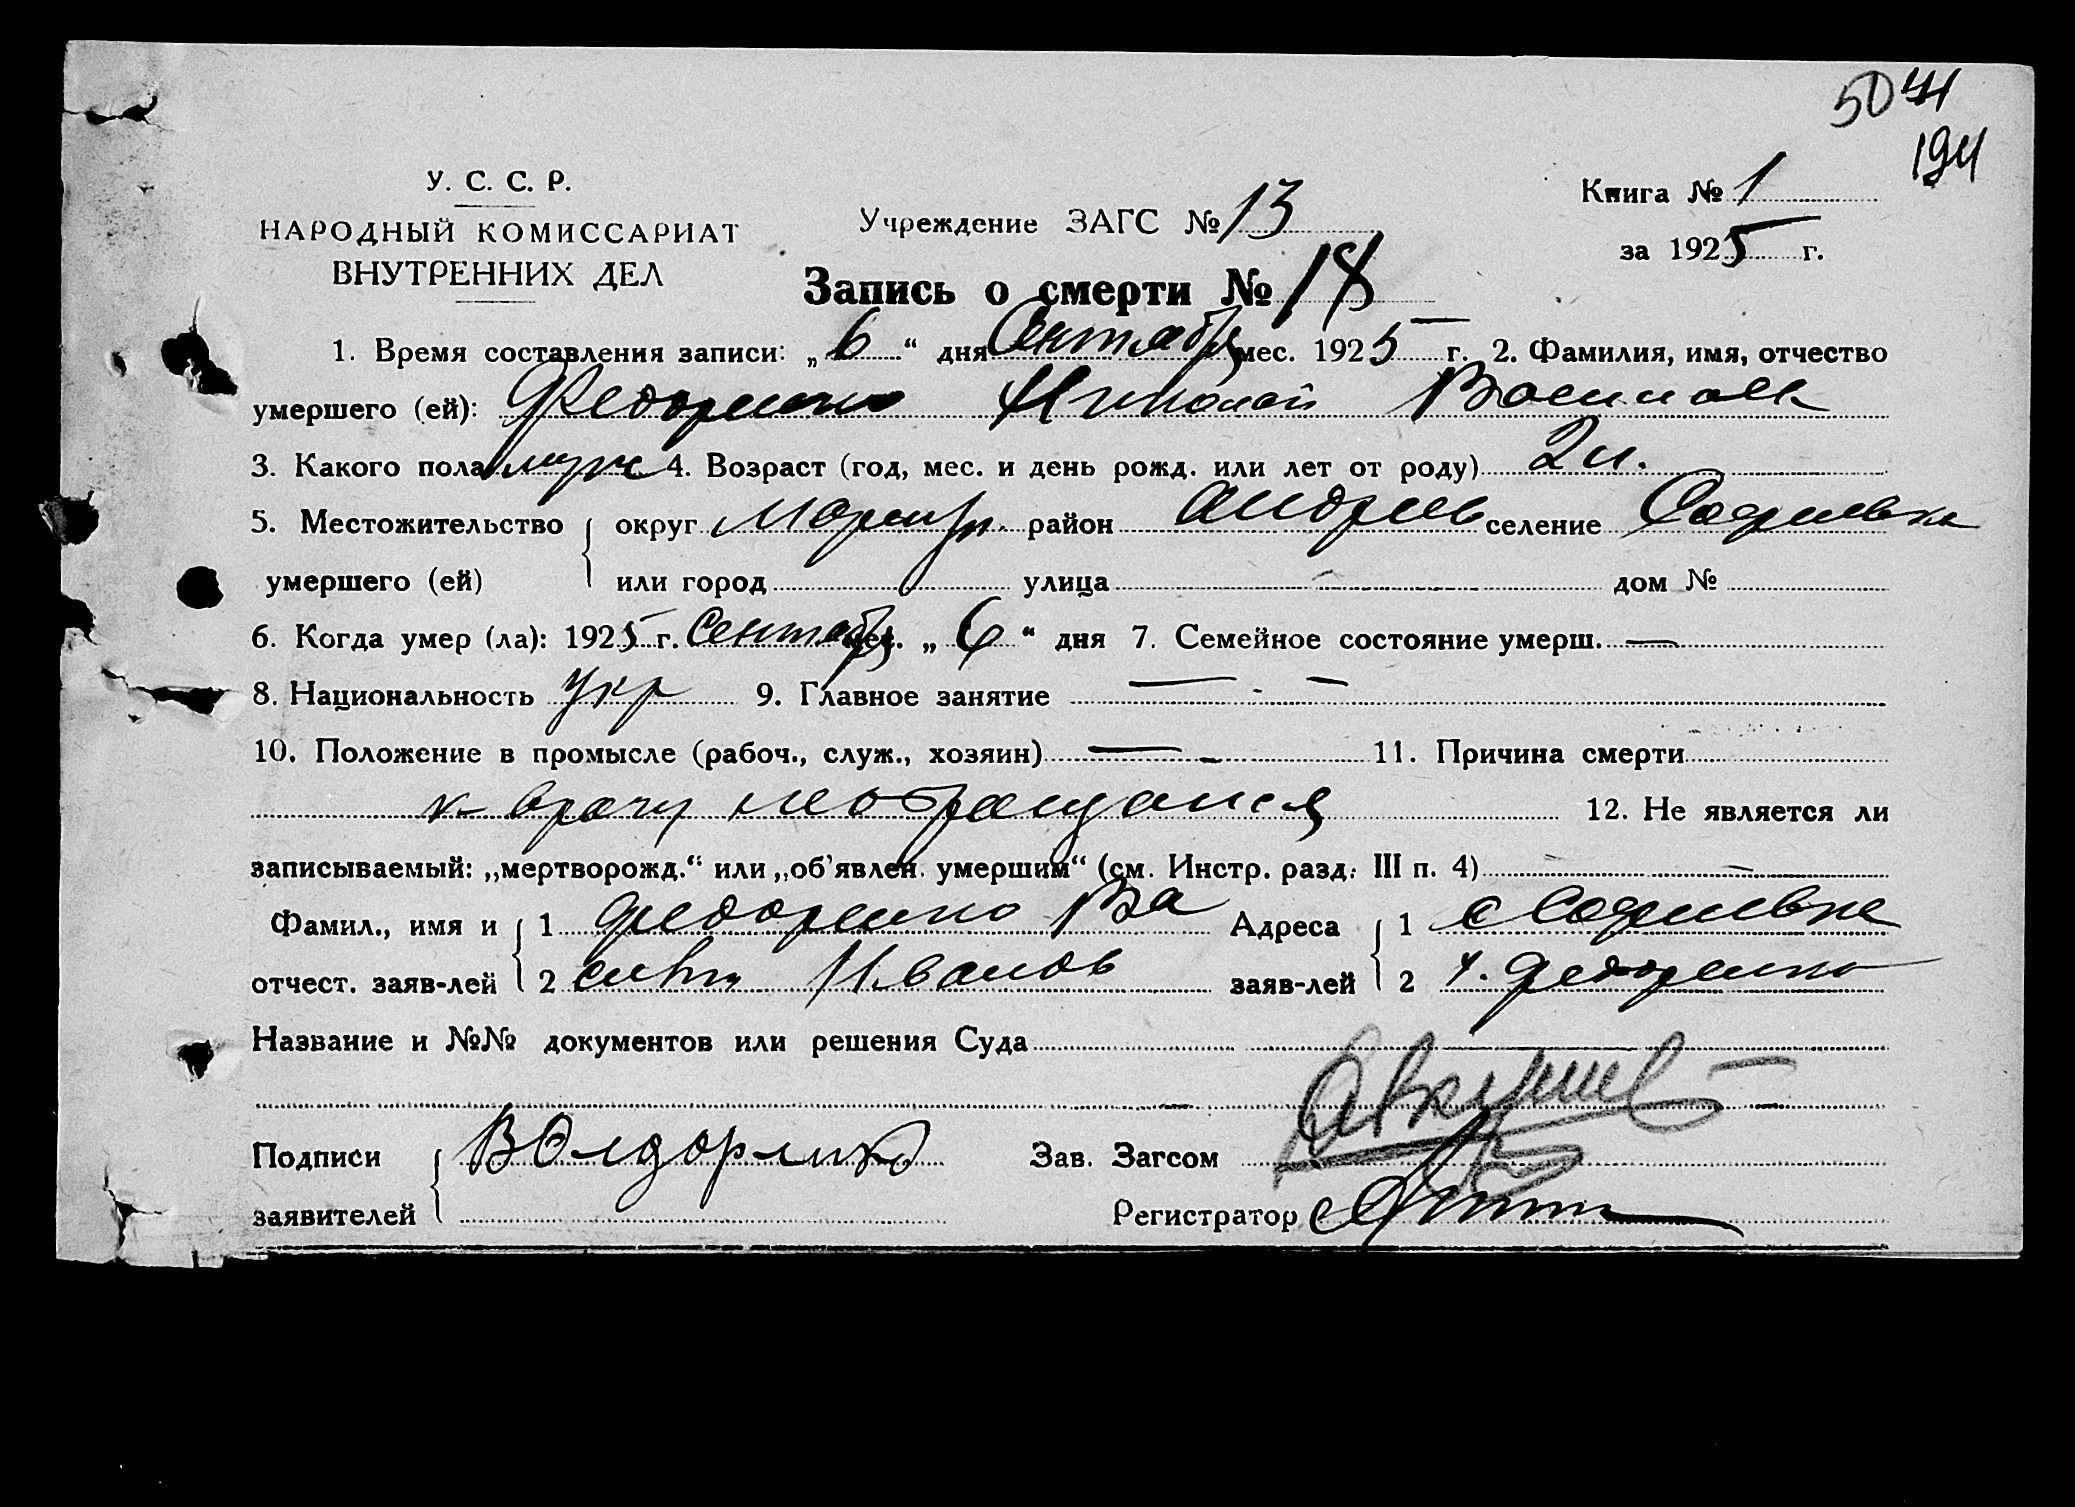 50
194
У. С. С. Р.
НАРОДНЫЙ КОМИССАРИАТ
ВНУТРЕННИХ ДЕЛ
Учреждение ЗАГС № 13
Книга № 1
за 1925 г.
Запись о смерти № 18
1. Время составления записи: „6“ дня Сентября мес. 1925 г. 2. Фамилия, имя, отчество
умершего (ей): Федоренко Николай Васильев
3. Какого пола муж 4. Возраст (год, мес. и день рожд. или лет от роду)
5. Местожительство округ Мариуп. район Андреев селение Софиевка
умершего (ей) или город улица дом №
6. Когда умер (ла): 1925 г. Сентября мес. „6“ дня 7. Семейное состояние умерш. —
8. Национальность укр 9. Главное занятие —
10. Положение в промысле (рабоч., служ., хозяин) — 11. Причина смерти
к врачу не обращался 12. Не является ли
записываемый: „мертворожд.“ или „об'явлен. умершим“ (см. Инстр. разд. III п. 4)
Фамил., имя и 1 Федоренко Ва Адреса 1 с Софиевка
отчест. заяв-лей 2 Иванов заяв-лей 2 Федоренко
Название и №№ документов или решения Суда
Подписи Зав. Загсом
заявителей Регистратор